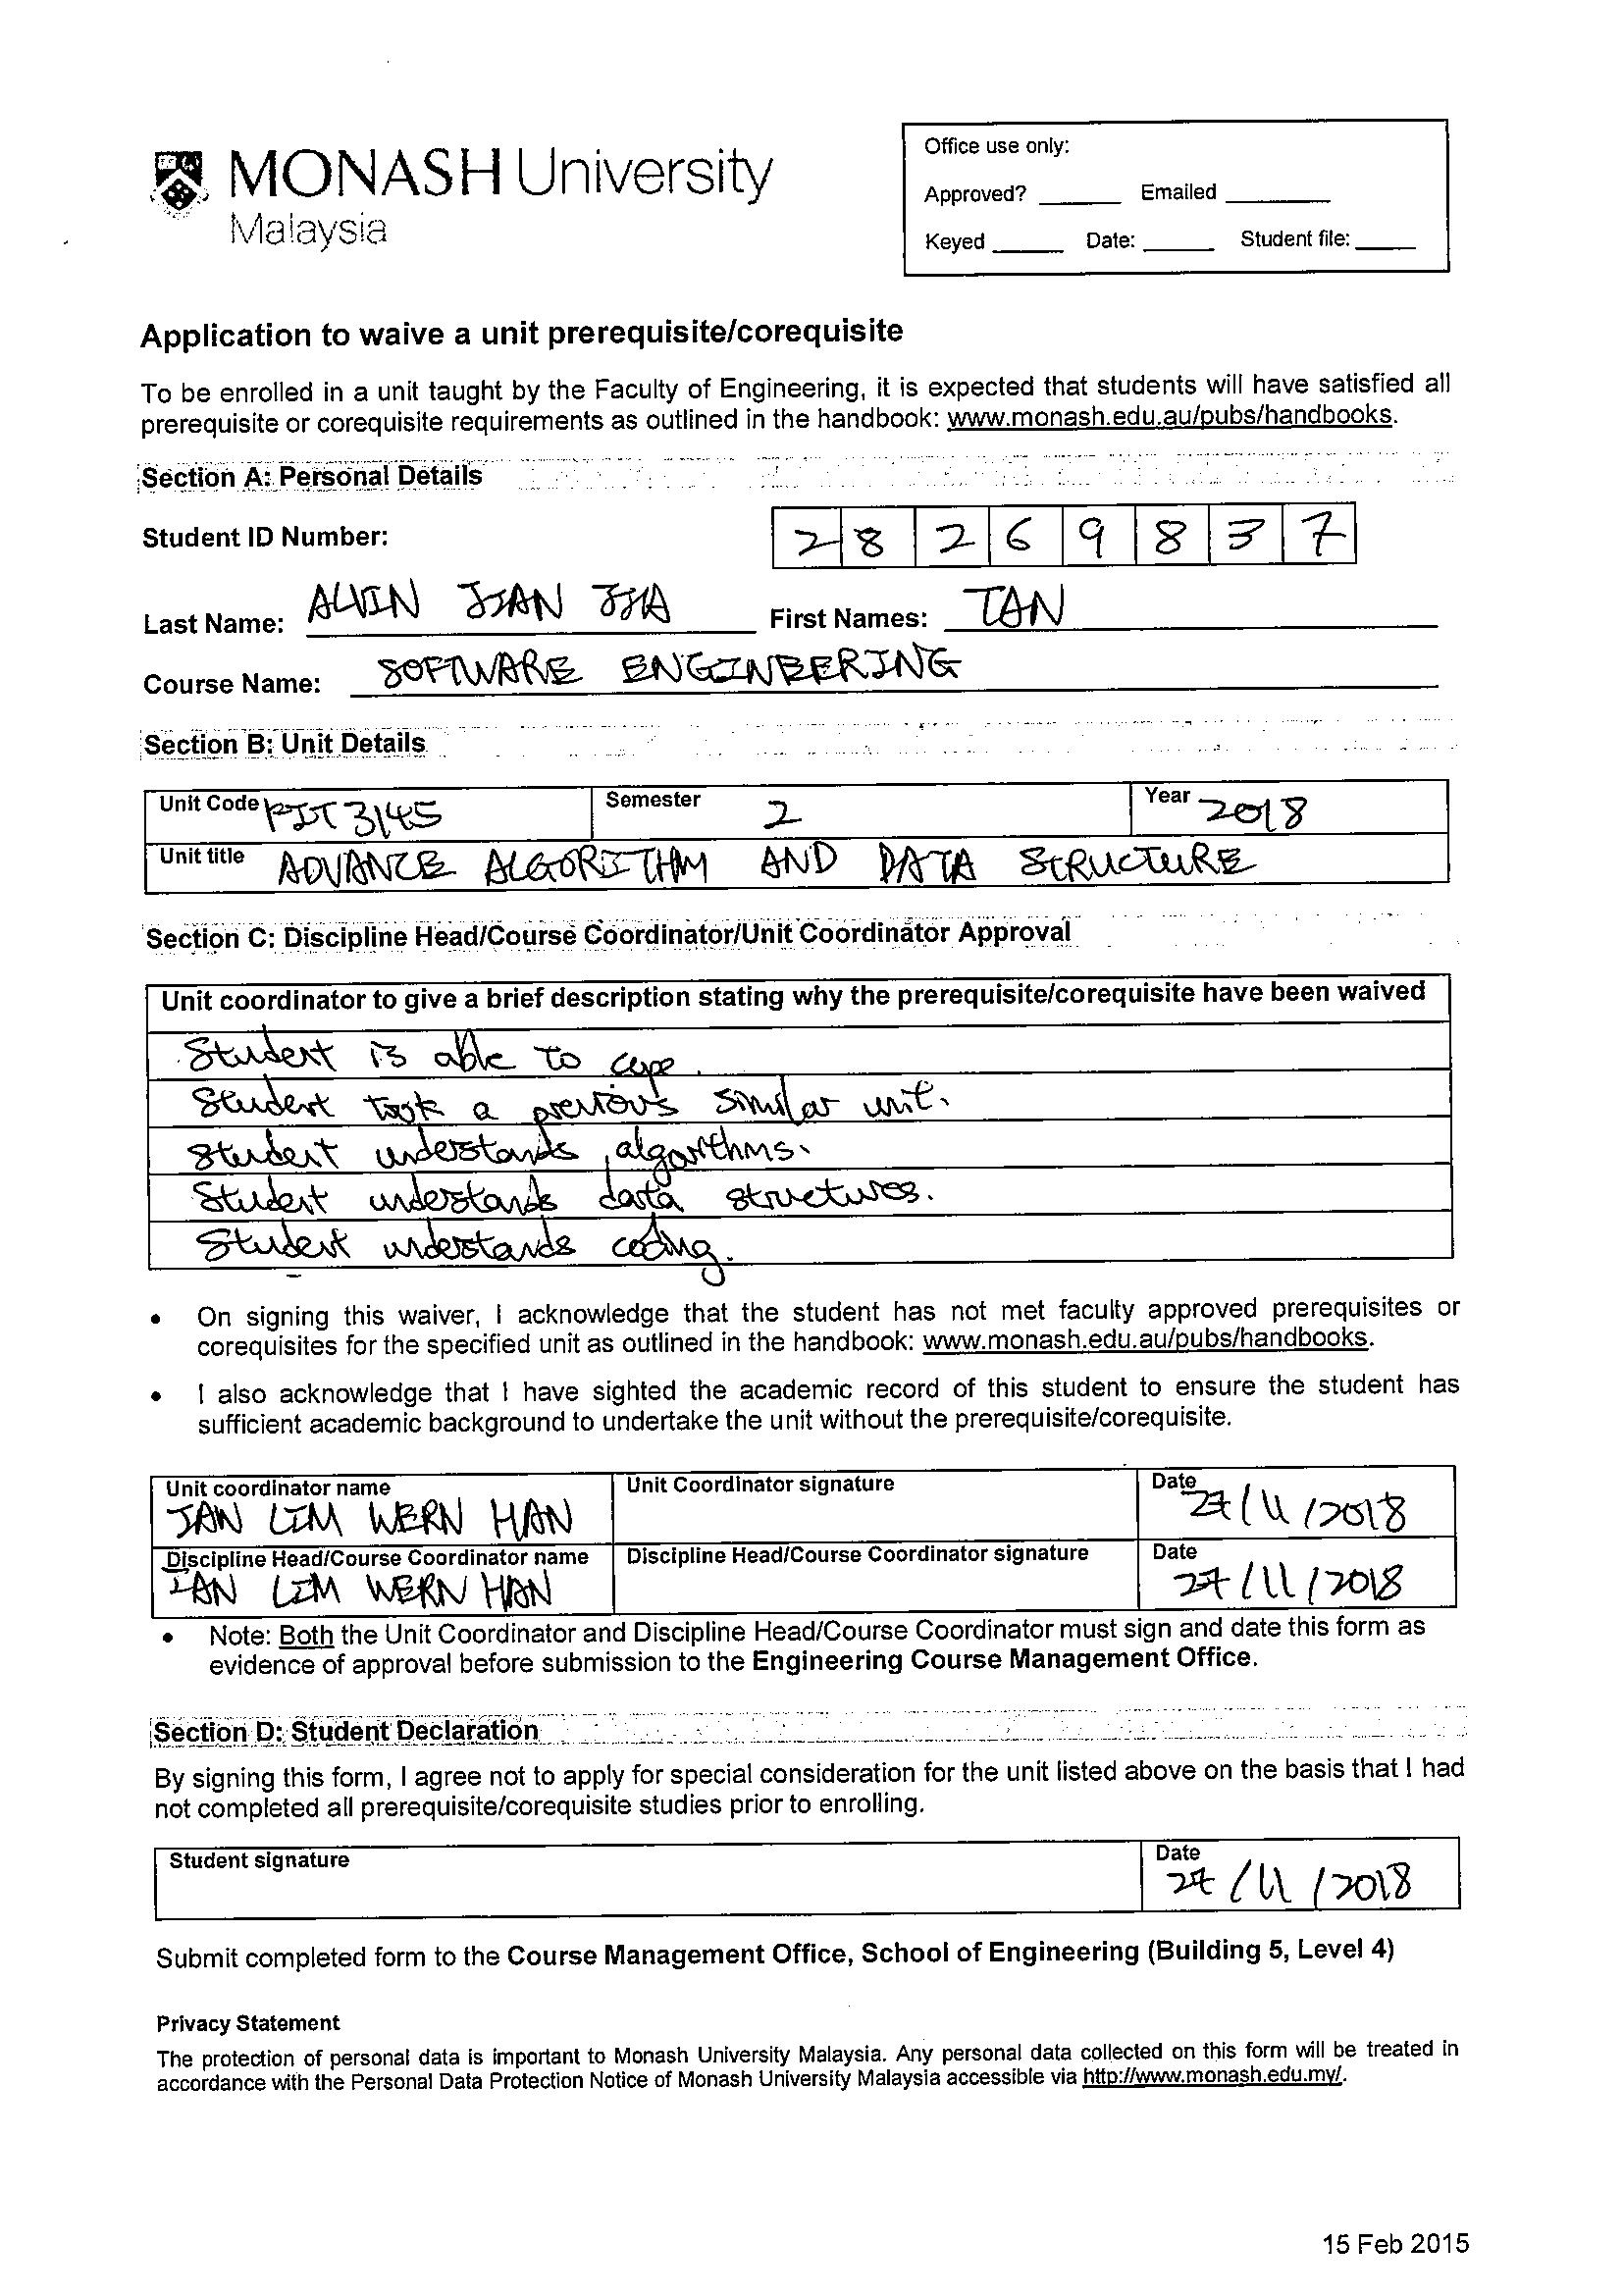 MONASH University
Malaysia
Office use only:
Approved? ______ Emailed ________
Keyed _____ Date: _____ Student file: ____
Application to waive a unit prerequisite/corequisite
To be enrolled in a unit taught by the Faculty of Engineering, it is expected that students will have satisfied all
prerequisite or corequisite requirements as outlined in the handbook: www.monash.edu.au/pubs/handbooks.
Section A: Personal Details
Student ID Number: 2 8 2 6 9 8 3 7
Last Name: ALVIN JIAN JIA First Names: TAN
Course Name: SOFTWARE ENGINEERING
Section B: Unit Details
Unit Code FIT 3145 Semester 2 Year 2018
Unit title ADVANCE ALGORITHM AND DATA STRUCTURE
Section C: Discipline Head/Course Coordinator/Unit Coordinator Approval
Unit coordinator to give a brief description stating why the prerequisite/corequisite have been waived
Student is able to cope.
Student took a previous similar unit.
Student understands algorithms.
Student understands data structures.
Student understands coding.
• On signing this waiver, I acknowledge that the student has not met faculty approved prerequisites or
corequisites for the specified unit as outlined in the handbook: www.monash.edu.au/pubs/handbooks.
• I also acknowledge that I have sighted the academic record of this student to ensure the student has
sufficient academic background to undertake the unit without the prerequisite/corequisite.
Unit coordinator name Unit Coordinator signature Date
IAN LIM WERN HAN 27/11/2018
Discipline Head/Course Coordinator name Discipline Head/Course Coordinator signature Date
IAN LIM WERN HAN 27/11/2018
• Note: Both the Unit Coordinator and Discipline Head/Course Coordinator must sign and date this form as
evidence of approval before submission to the Engineering Course Management Office.
Section D: Student Declaration
By signing this form, I agree not to apply for special consideration for the unit listed above on the basis that I had
not completed all prerequisite/corequisite studies prior to enrolling.
Student signature Date
27/11/2018
Submit completed form to the Course Management Office, School of Engineering (Building 5, Level 4)
Privacy Statement
The protection of personal data is important to Monash University Malaysia. Any personal data collected on this form will be treated in
accordance with the Personal Data Protection Notice of Monash University Malaysia accessible via http://www.monash.edu.my/.
15 Feb 2015